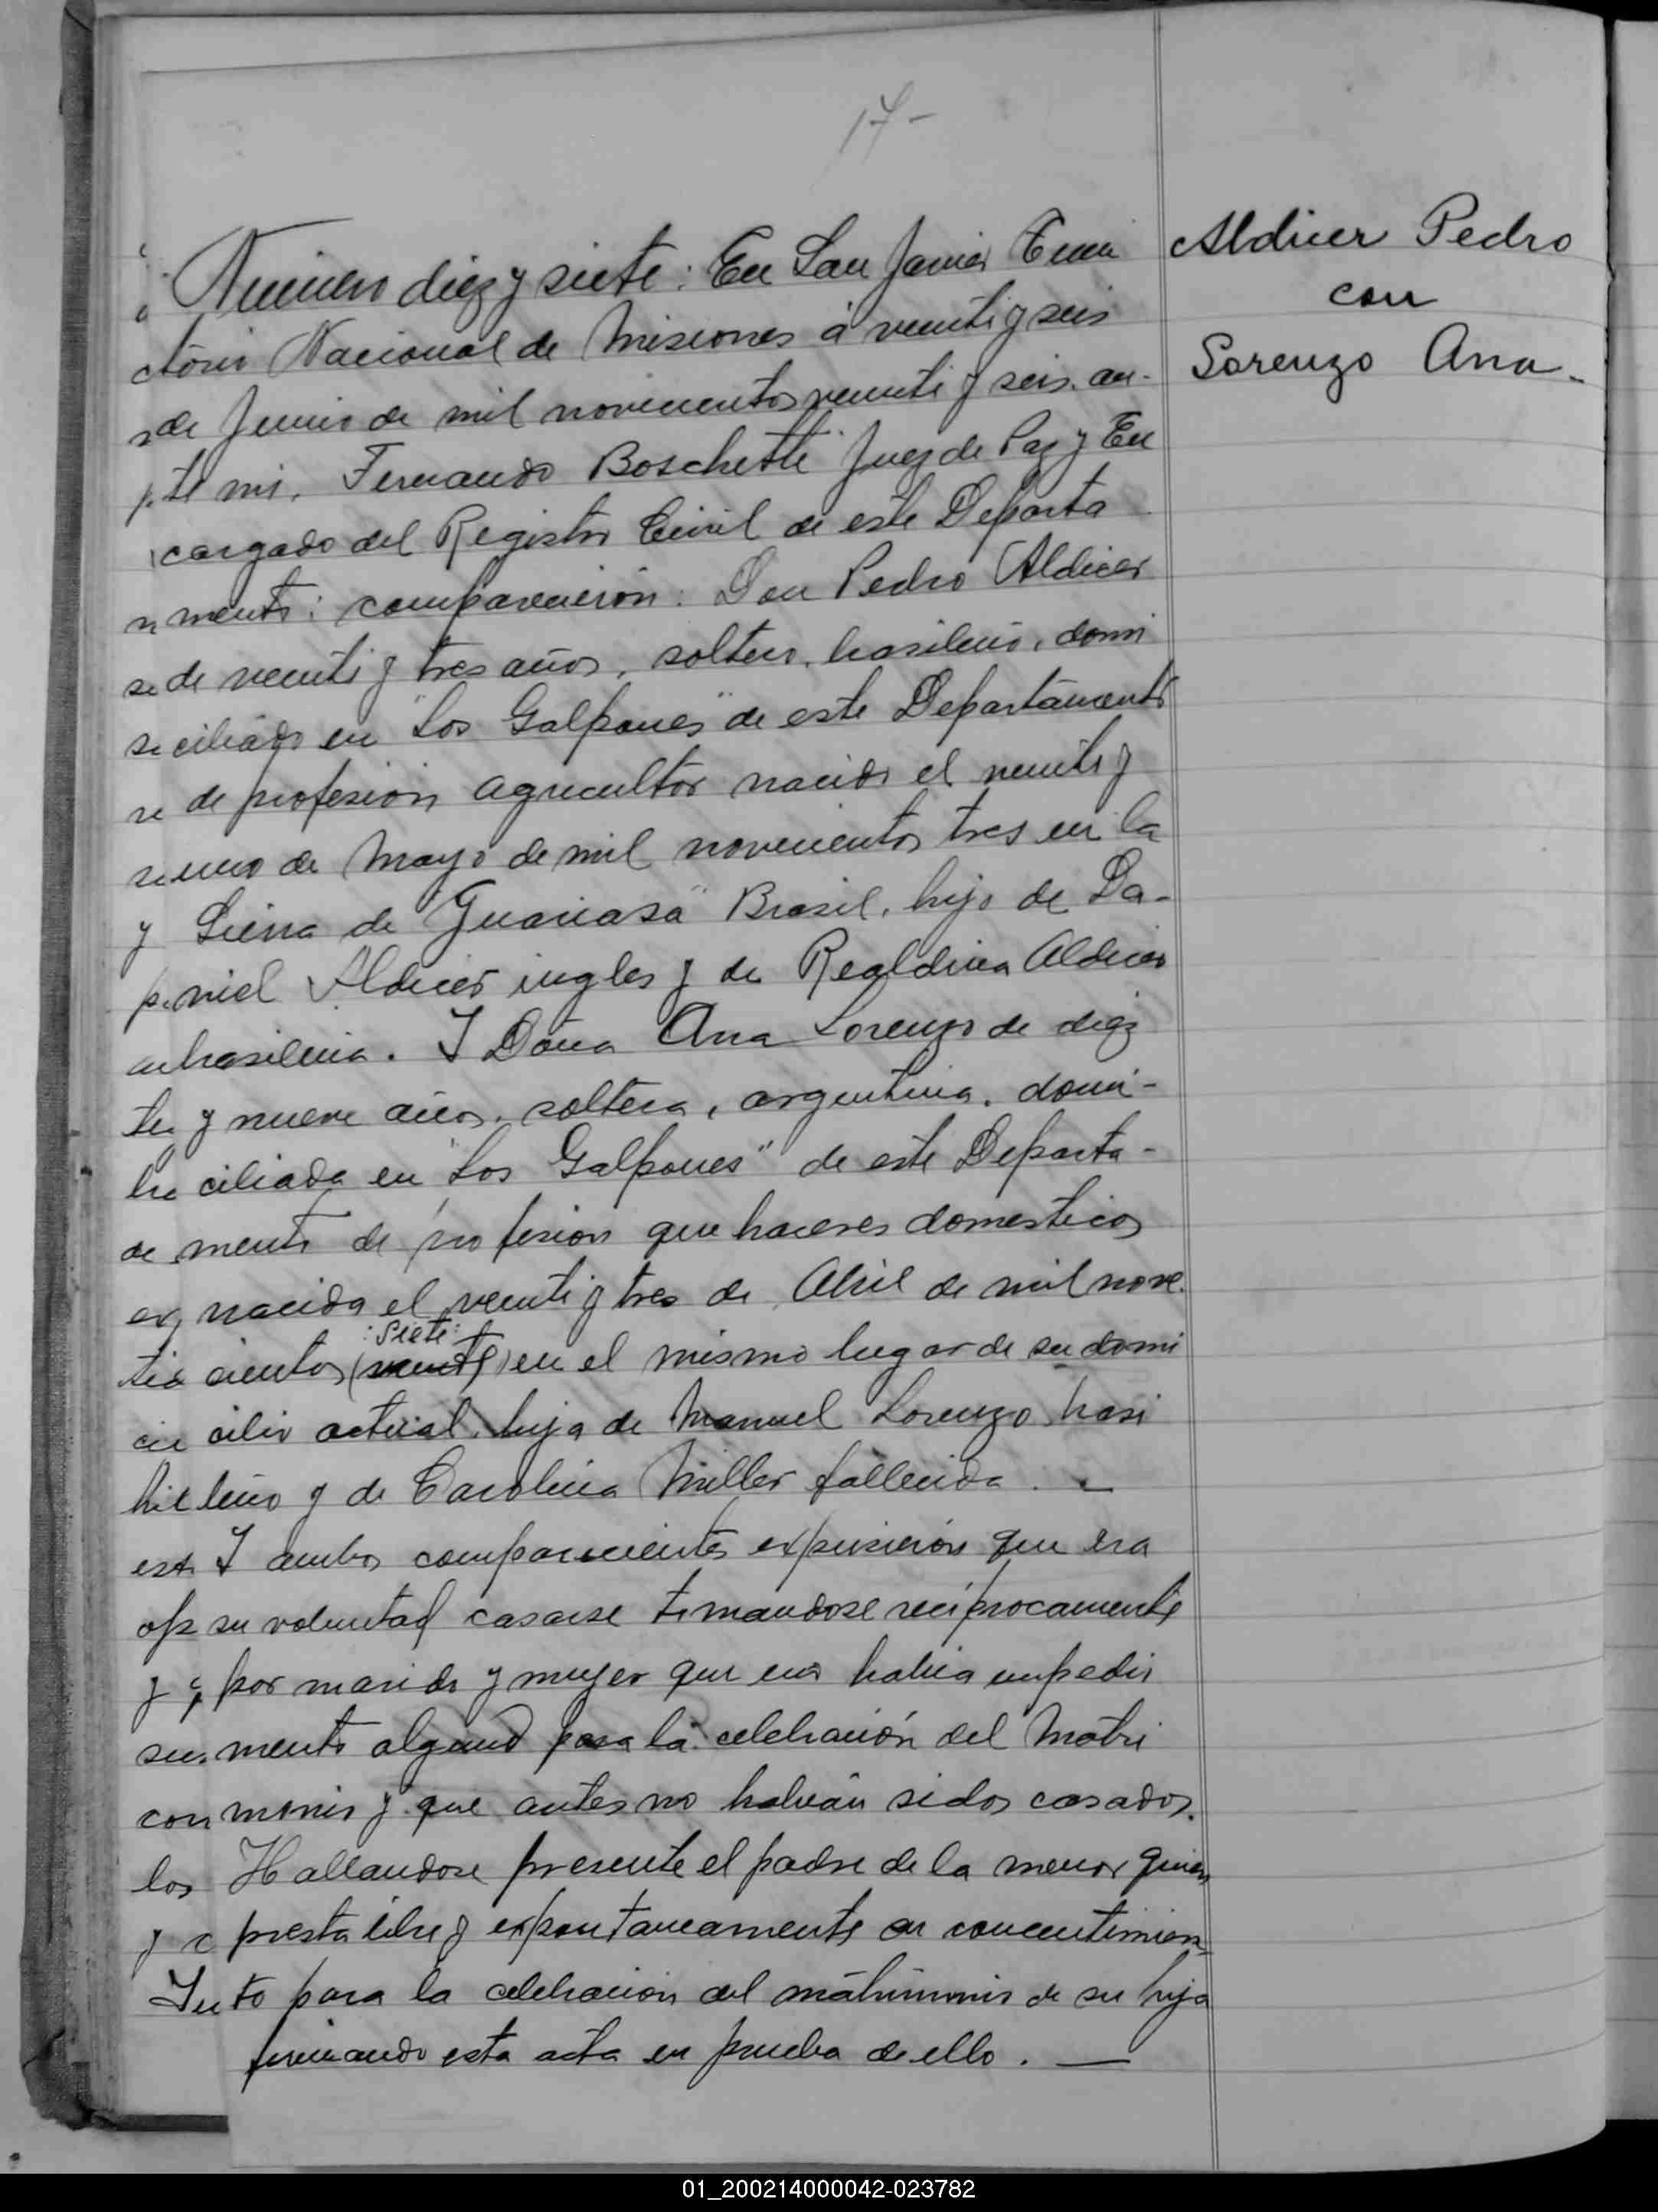 17-
Numero diez y siete: En San Javier Terri
torio Nacional de Misiones á veinti y seis
de Junio de mil novecientos veinti y seis. an-
te mi, Fernando Boschetti Juez de Paz y En
cargado del Registro Civil de este Departa
mento: comparecieron: Don Pedro Aldicer
de veinti y tres años, soltero, brasilero, domi
ciliado en "Los Galpones" de este Departamento
de profesion agricultor nacido el veinti y
uno de Mayo de mil novecientos tres en la
Sierra de "Guariasa" Brasil, hijo de Da-
niel Aldicer ingles y de Realdina Aldicer
brasilera. Y Doña Ana Lorenzo de diez
y nueve años, soltera, argentina, domi-
ciliada en "Los Galpones" de este Departa-
mento de profesion que haceres domesticos
nacida el veinti y tres de Abril de mil nove
:siete:
cientos (veinte) en el mismo lugar de su domi
cilio actual, hija de Manuel Lorenzo brasi
leño y de Carolina Miller fallecida. -
Y ambos comparecientes expusieron que era
su voluntad casarse tomandose reciprocamente
por marido y mujer que no habia impedi
mento alguno para la celebración del Matri
monio y que antes no habian sidos casados.
Hallandose presente el padre de la menor quien
presta libre y expontaneamente su concentimien
to para la celebracion del matrimonio de su hija
firmando esta acta en prueba de ello. —
Aldicer Pedro
con
Lorenzo Ana-
01_200214000042-023782